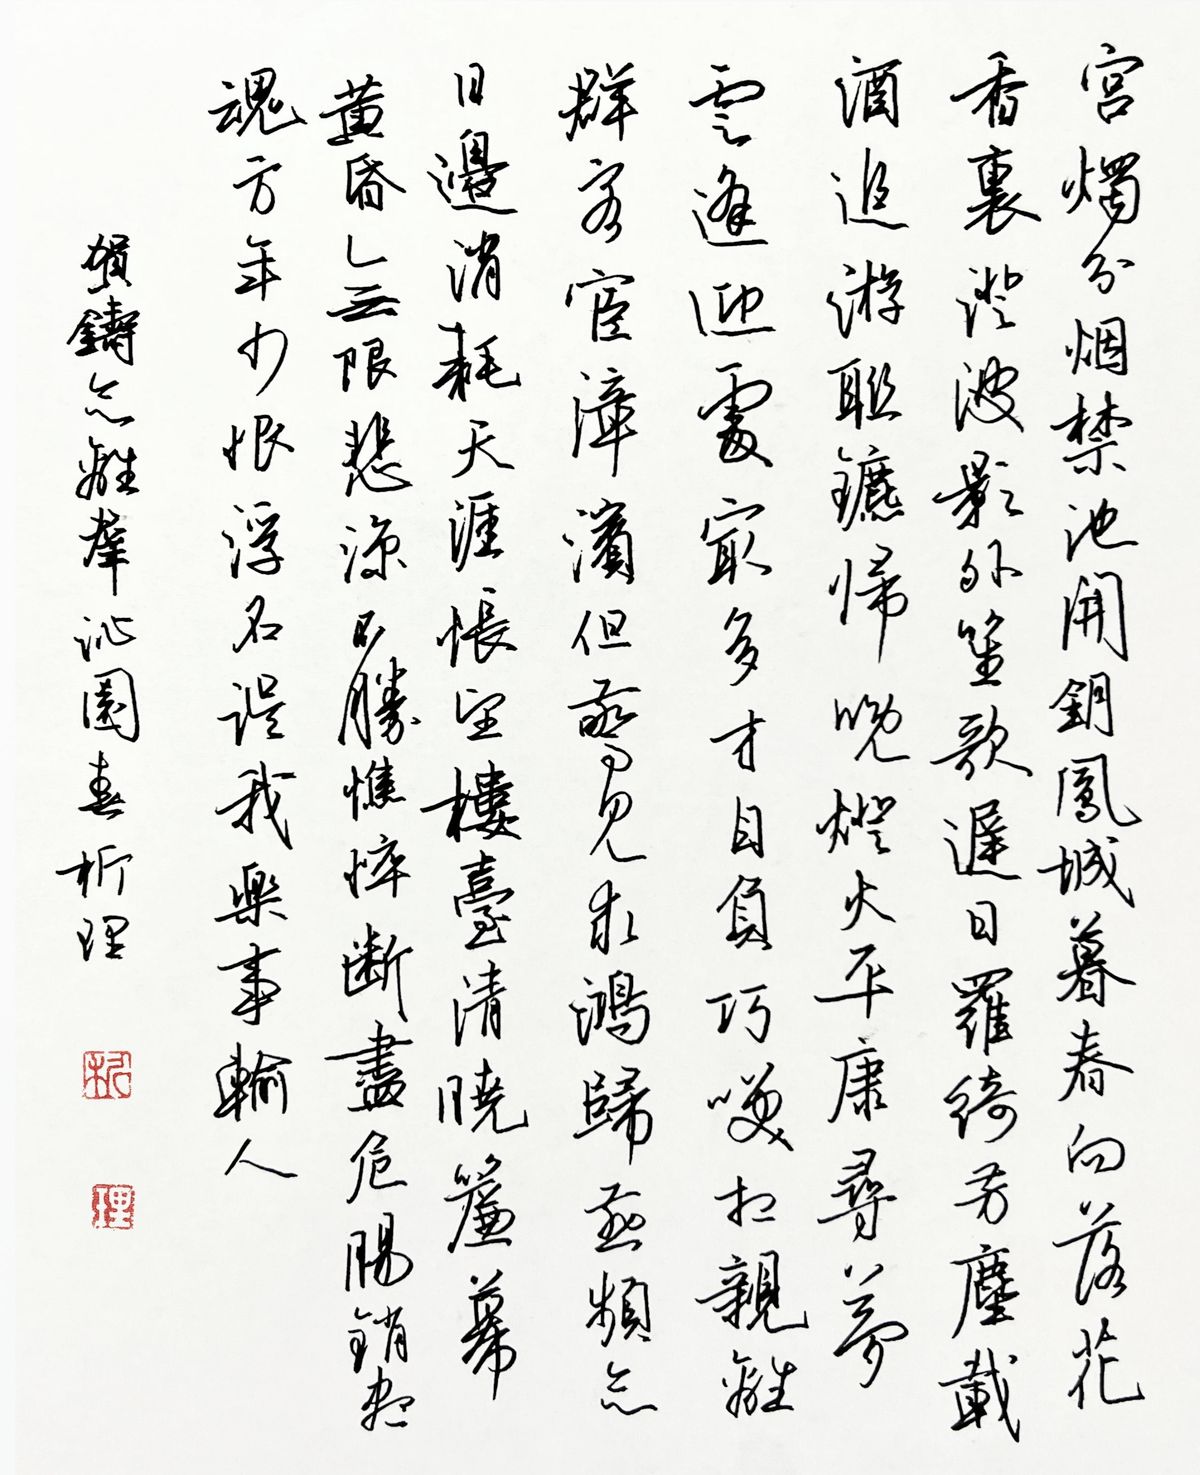 宮燭分烟禁池開鈅鳳城暮春向落花
香裏澄波影外笙歌遲日羅綺芳塵載
酒追游聯鑣帰晚燈火平康尋夢
雲逢迎處㝡多才自負巧笑相親離
群客宦漳濱但驚見來鴻歸燕頻念
日邊消耗天涯悵望樓臺清曉簾幕
黃昏無限悲涼不勝憔悴斷盡危腸銷盡
魂方年少恨浮名誤我樂事輸人
賀鑄念離羣沁園春 析理
析
理